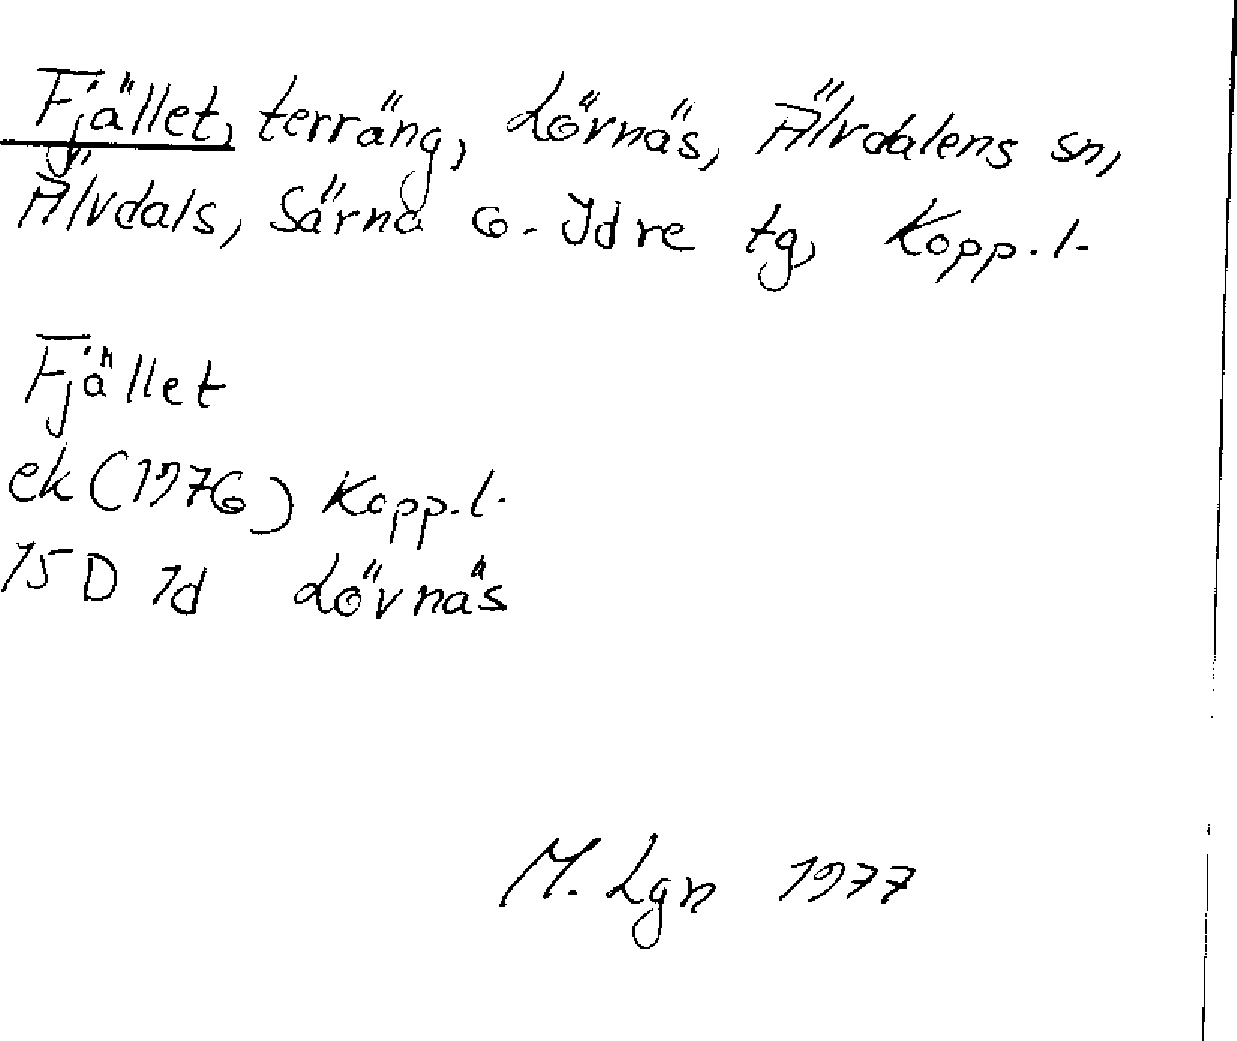 Fjället, terräng, Lövnäs, Älvdalens sn,
Älvdals, Särna o. Idre tg, Kopp. l.
Fjället
ek (1976) Kopp. l.
15 D 1d Lövnäs
M. Lgn 1977